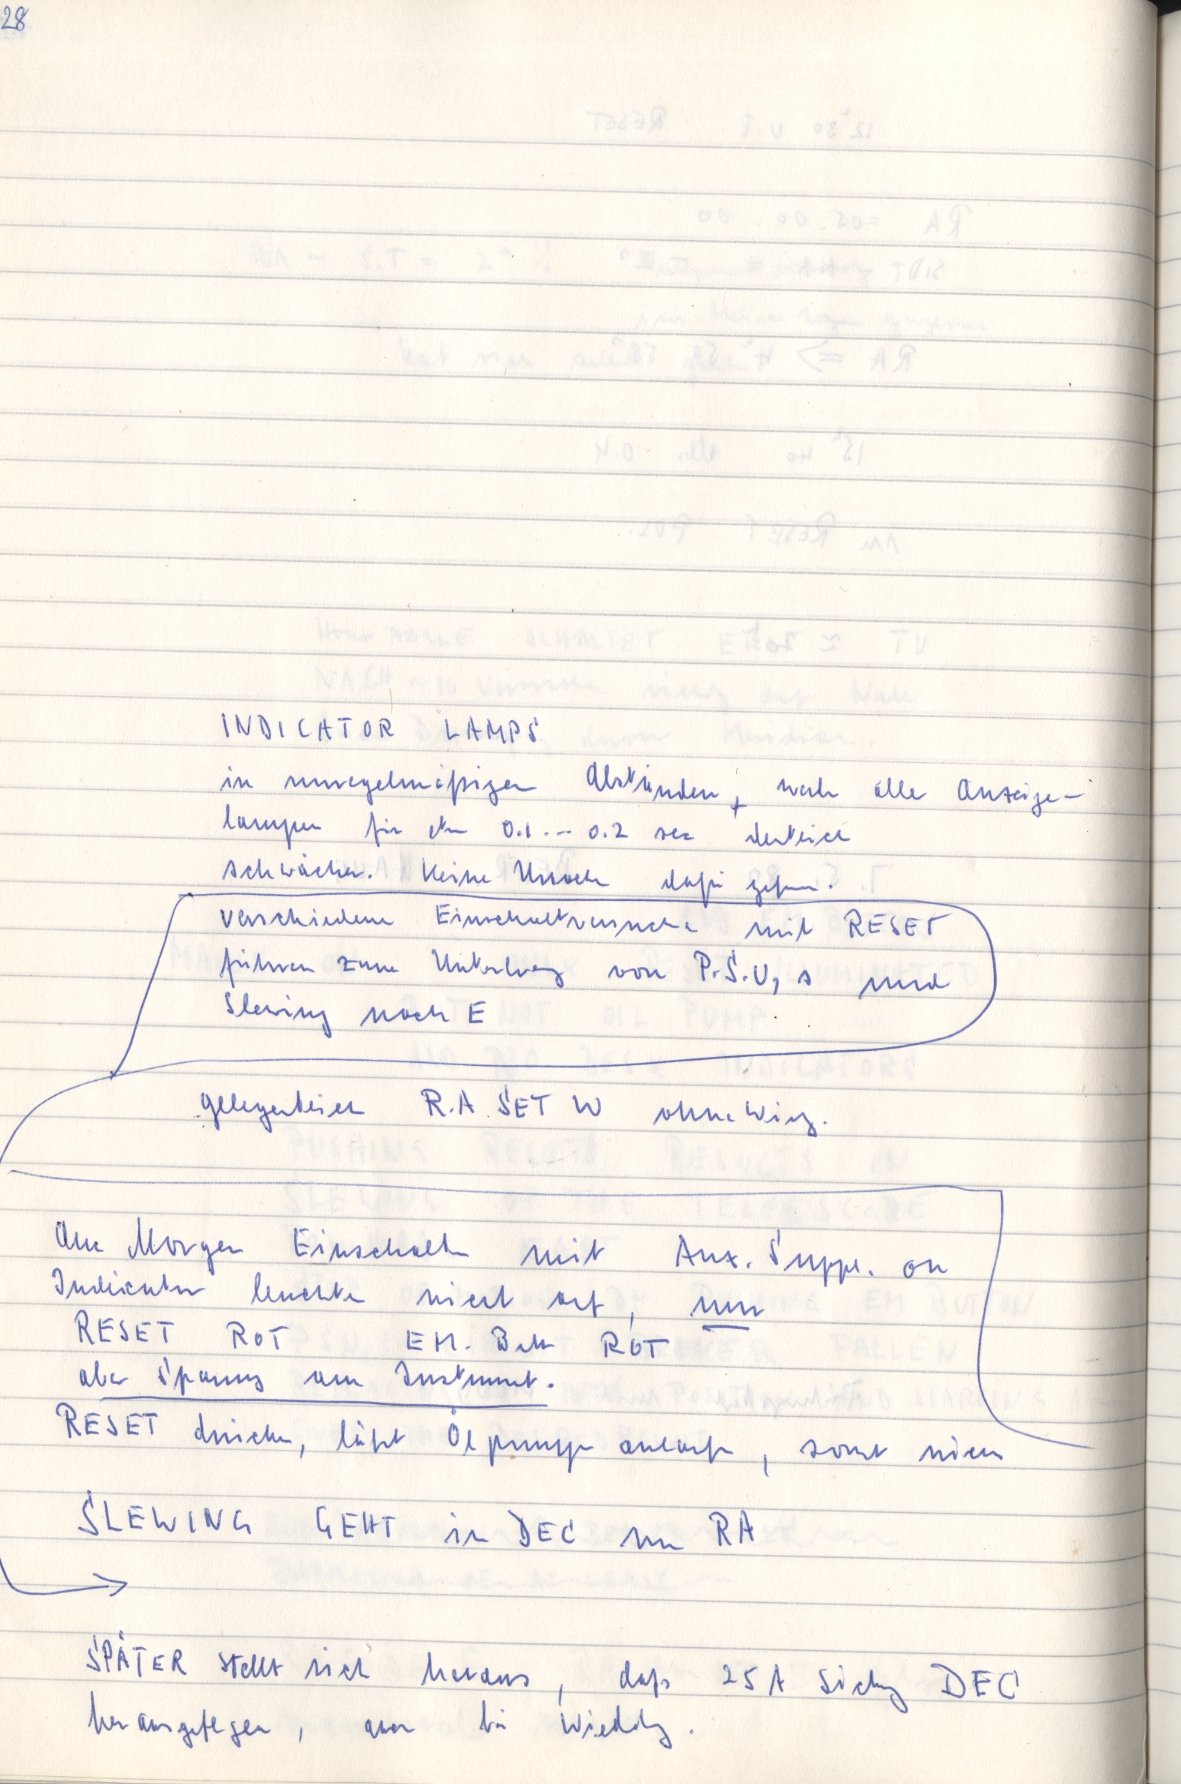 28
INDICATOR LAMPS
in unregelmäßigen Abständen, werden alle Anzeige-
lampen für etwa 0.1 --- 0.2 sec deutlich
schwächer. Keine Ursache dafür gefun.
verschiedene Einschaltversuche mit RESET
führen zum von P.S.U,s und
Slewing nach E
gelegentlich R.A SET W ohne Wirkg.
Am Morgen Einschalten mit Aux. Suppl. on
Indicator leuchten nicht auf, nur
RESET ROT EM. Butt ROT
aber Spannung am Instrument.
RESET drücken, läßt Ölpumpe anlaufen, sonst nichts
SLEWING GEHT in DEC nur RA
SPÄTER stellt sich heraus, daß 25A Sichg DEC
herausgeflogen, von